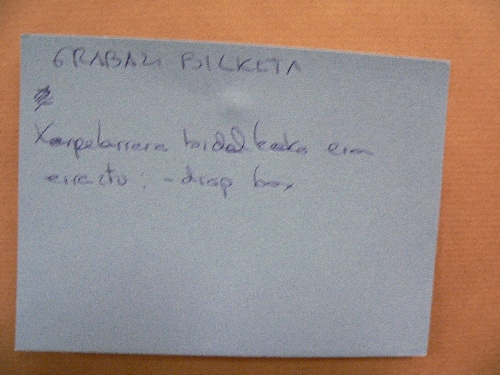 GRABAZI BILKETA
Xarpelarrera bidaltzeko era
errectu: - drop box